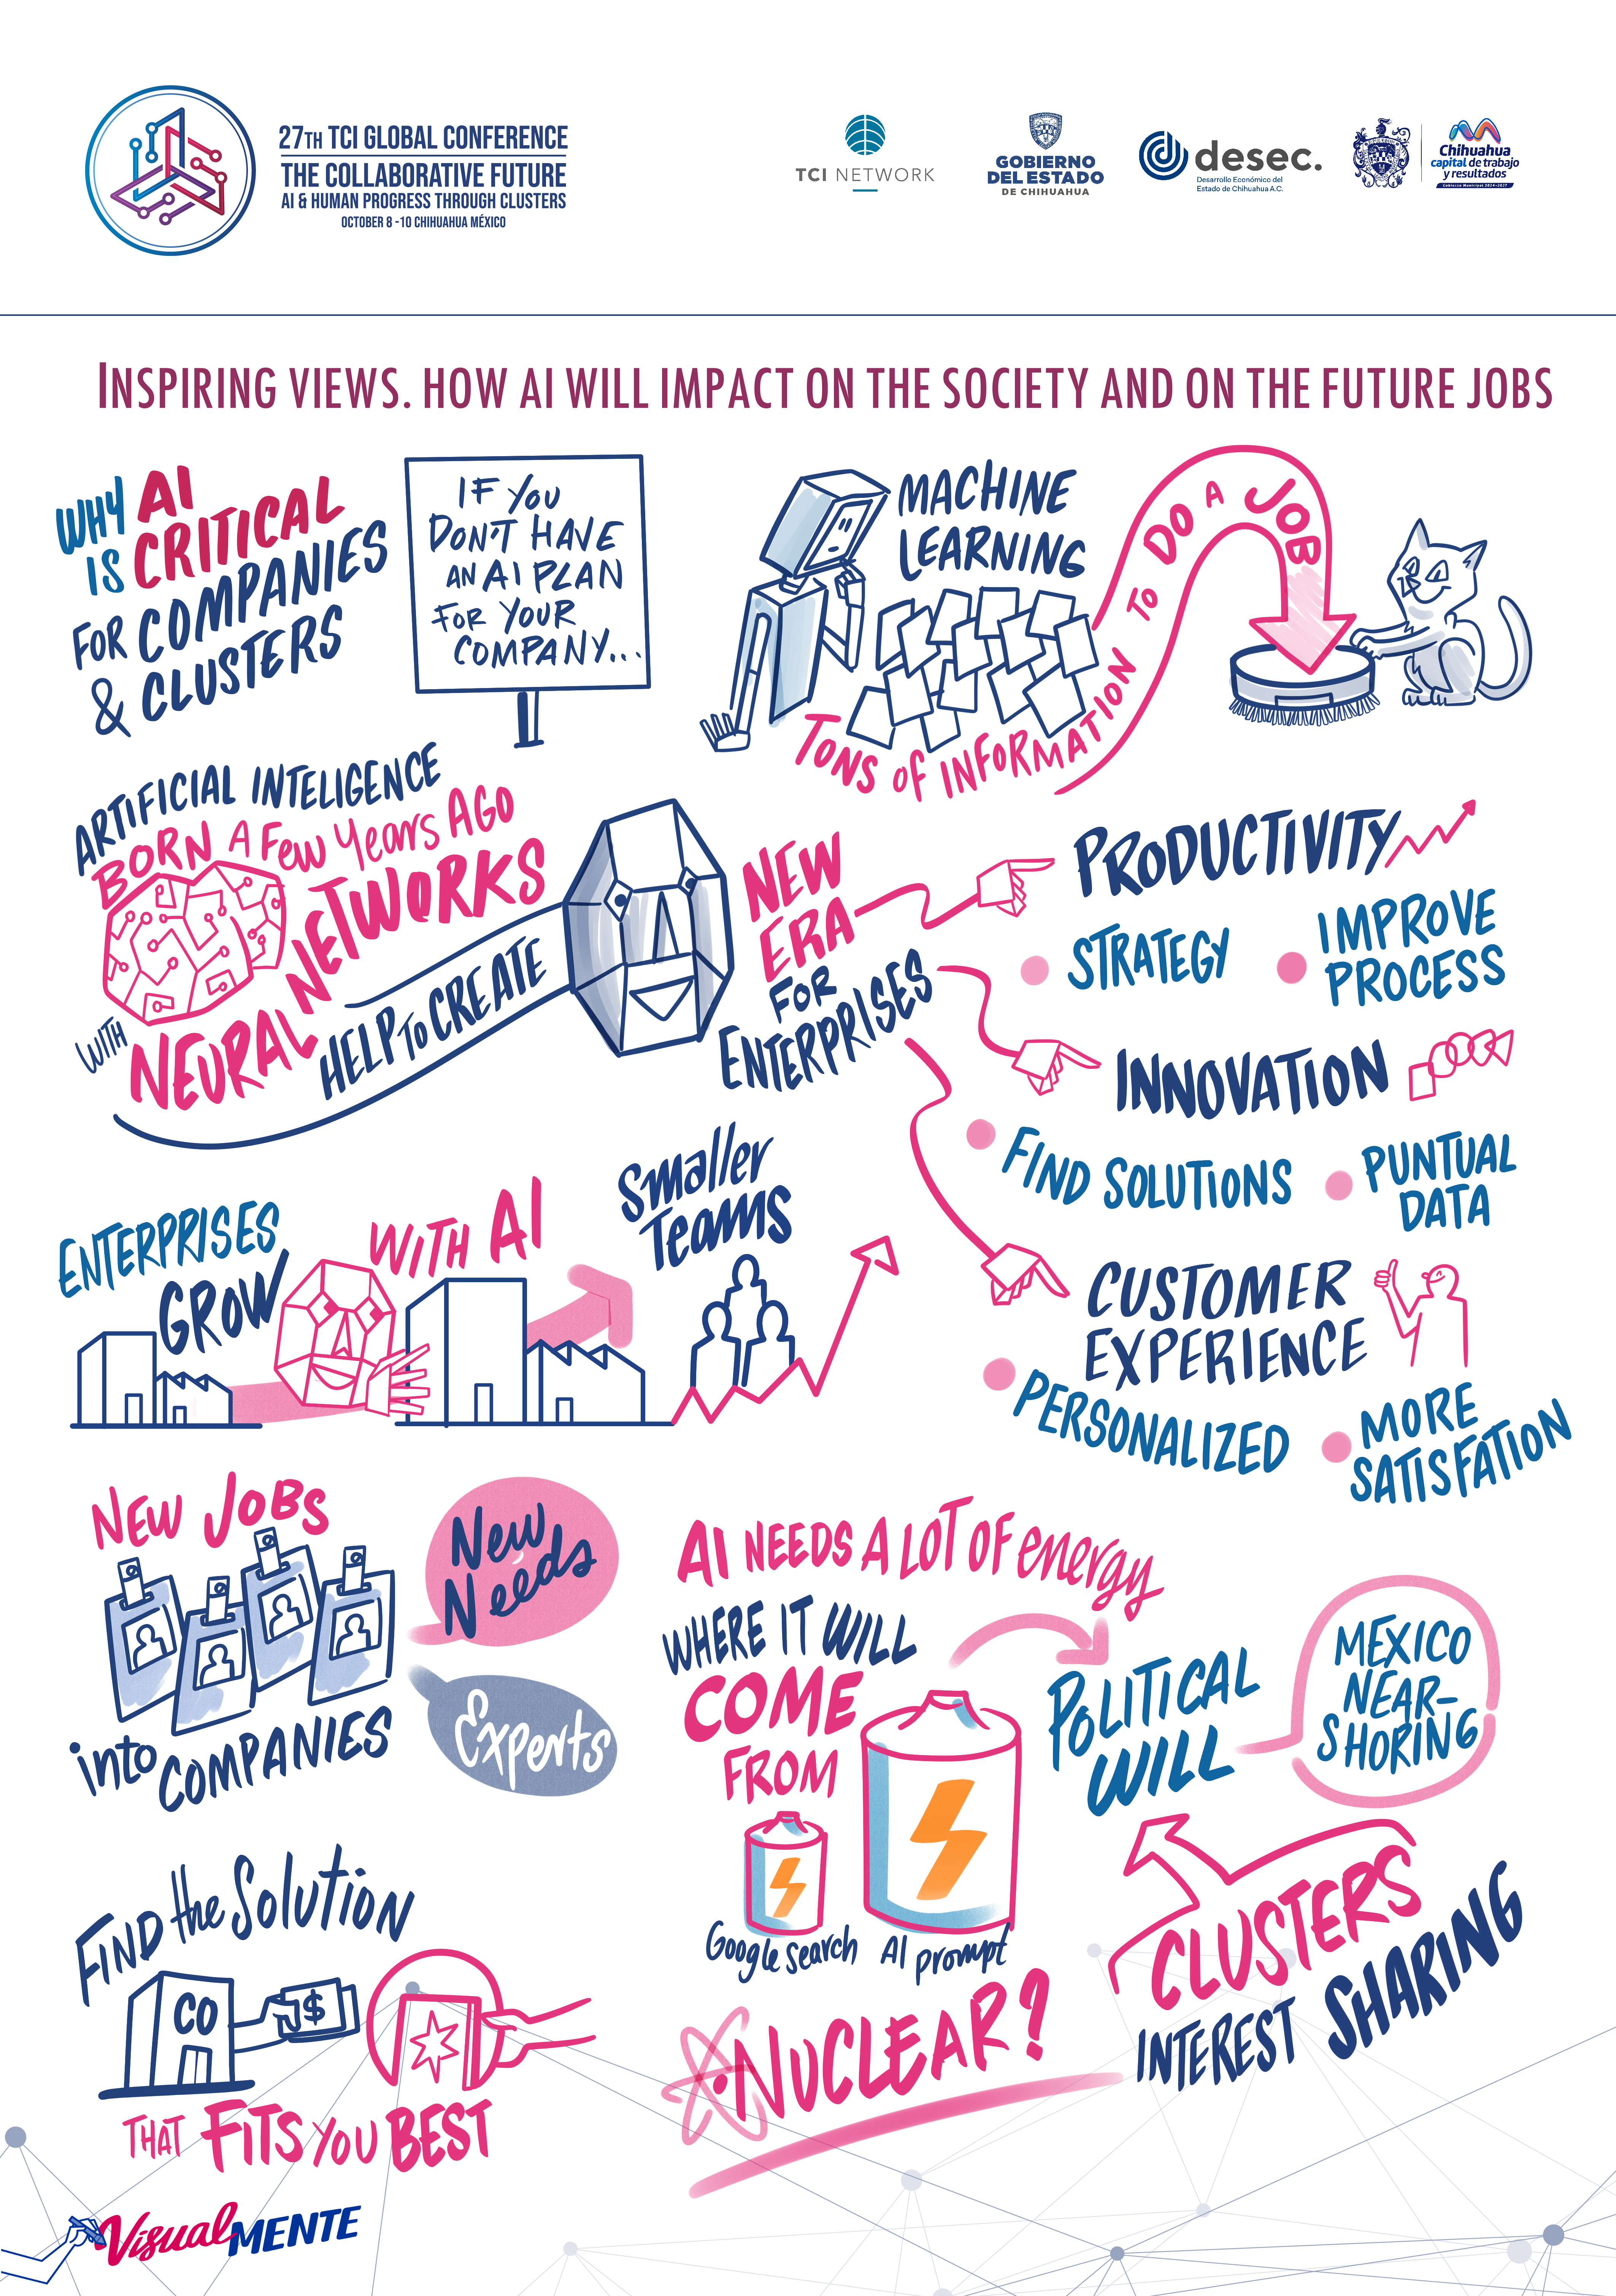 27TH TCI GLOBAL CONFERENCE
THE COLLABORATIVE FUTURE
AI & HUMAN PROGRESS THROUGH CLUSTERS
OCTOBER 8 -10 CHIHUAHUA MÉXICO
TCI NETWORK
GOBIERNO
DEL ESTADO
DE CHIHUAHUA
desec.
Desarrollo Económico del
Estado de Chihuahua A.C.
Chihuahua
capital de trabajo
y resultados
Gobierno Municipal 2024-2027
INSPIRING VIEWS. HOW AI WILL IMPACT ON THE SOCIETY AND ON THE FUTURE JOBS
WHY AI
IS CRITICAL
FOR COMPANIES
& CLUSTERS
IF YOU
DON'T HAVE
AN AI PLAN
FOR YOUR
COMPANY...
MACHINE
LEARNING
TONS OF INFORMATION TO DO A JOB
ARTIFICIAL INTELIGENCE
BORN A FEW YEARS AGO
WITH NEURAL NETWORKS
HELP TO CREATE
NEW
ERA
FOR
ENTERPRISES
PRODUCTIVITY
STRATEGY
IMPROVE
PROCESS
INNOVATION
FIND SOLUTIONS
PUNTUAL
DATA
CUSTOMER
EXPERIENCE
PERSONALIZED
MORE
SATISFATION
ENTERPRISES
GROW
WITH AI
Smaller
Teams
NEW JOBS
into COMPANIES
New
Needs
Experts
AI NEEDS A LOT OF energy
WHERE IT WILL
COME
FROM
Google search
AI prompt
NUCLEAR?
POLITICAL
WILL
MEXICO
NEAR-
SHORING
CLUSTERS
INTEREST SHARING
FIND the Solution
CO
$
THAT FITS YOU BEST
VisualMENTE